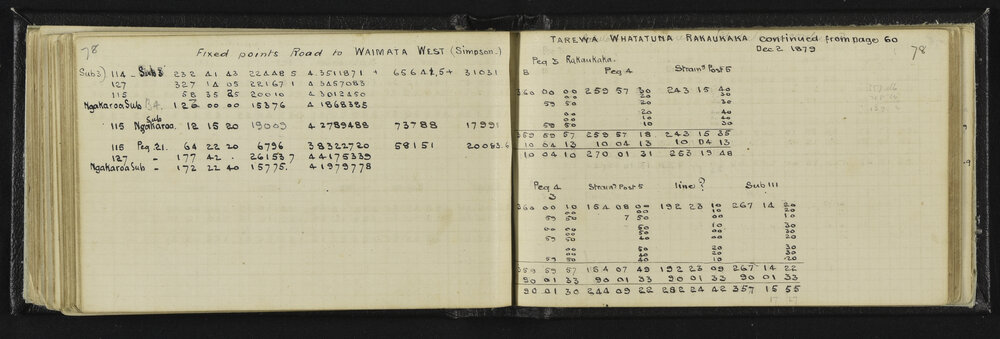 78
Fixed points Road to WAIMATA WEST (Simpson-)
Sub3) 114 - Sub 3 232 41 43 22448 5 4.3511871 + 65642,5+ 31031
127 327 14 05 22167 1 4 3457083
115 58 35 25 20010 4 3012450
Ngakaroa Sub 34. 122 00 00 15376 4 1868385
Sub
115 Ngakaroa. 12 15 20 19009 4 2789488 73788 17991
115 Peg 21. 64 22 20 6796 3 8322720 58151 20083.6
127 - 177 42 . 26153 7 4 4175339
Ngakaroa Sub - 172 22 40 15775. 4 1979778
TAREWA WHATATUNA RAKAUKAKA Continued from page 60
Dec 2 1879
78
Peg 3 Rakaukaka.
8 Peg 4 Strain? Post 5
360 00 00 259 57 30 243 15 40
00 20 30
59 50 20 30
00 20 40
00 10 40
59 50 10 30
359 59 57 259 57 18 243 15 35
10 04 13 10 04 13 10 04 13
10 04 10 270 01 31 253 19 48
Peg 4 Strain? Post 5 line ? Sub 111
3
360 00 10 154 08 00 192 23 10 267 14 20
00 00 00 20
59 50 7 50 00 10
00 00 50 00 30
00 40 00 30
59 50 50 00 20
00 50 20 30
00 40 20 30
59 50 40 10 20
359 59 57 154 07 49 192 23 09 267 14 22
90 01 33 90 01 33 90 01 33 90 01 33
90 01 30 244 09 22 282 24 42 357 15 55
17 27